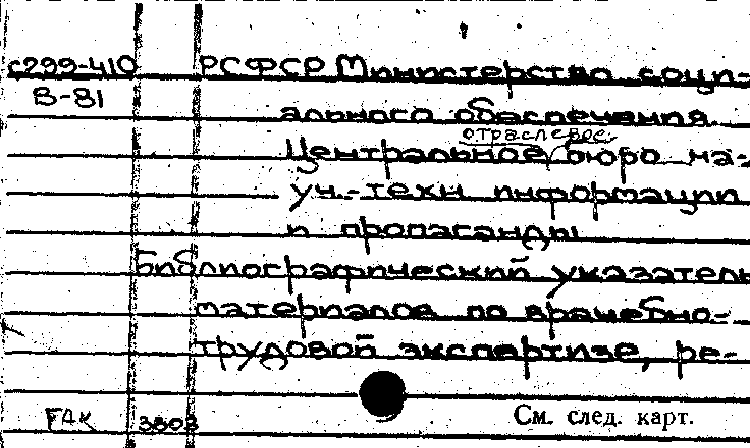 с299-410 РСФСР Министерство соци-
В-81 ального обеспечения.
отраслевое
Центральное бюро на-
уч.-техн информации
и пропаганды
Библиографический указатель
материалов по врачебно-
трудовой экспертизе, ре-
FAK 3803 См. след. карт.